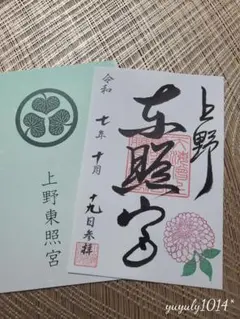 上野東照宮
上野
東照宮
令和
七年十月
十九日参拝
yuyuly1014*